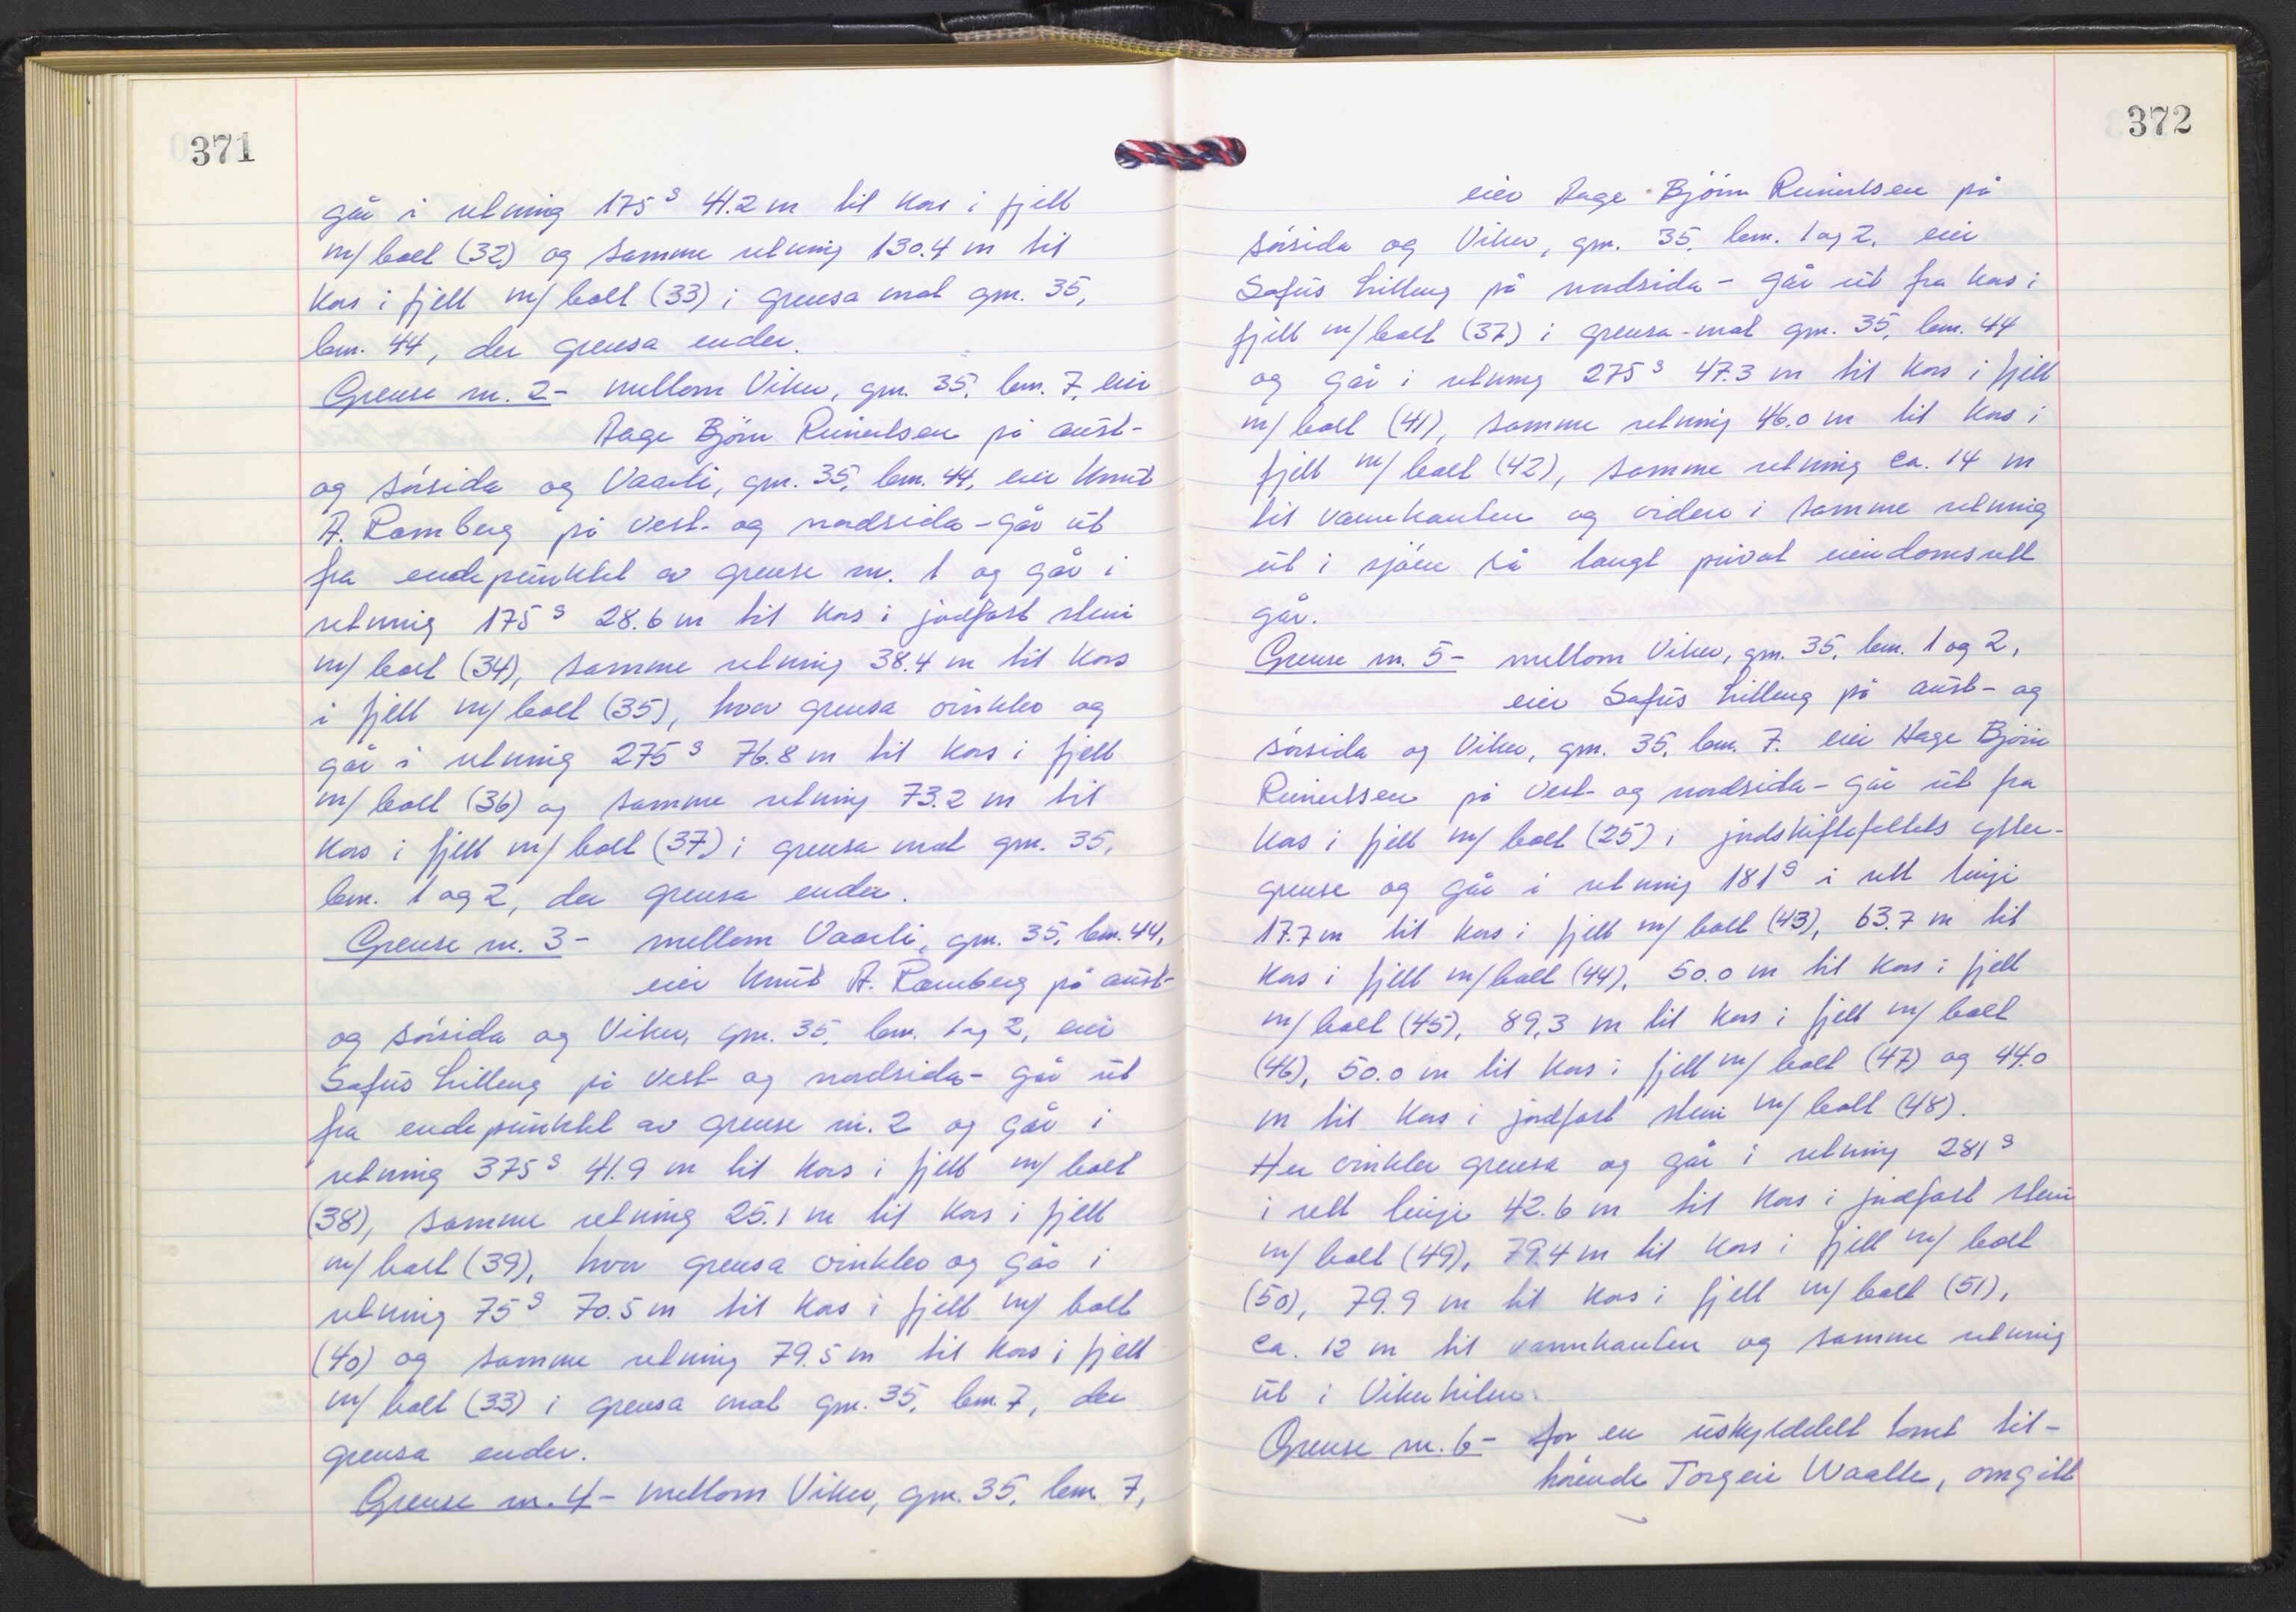 371
går i retning 175g 41.2 m til kors i fjell
m/ bolt (32) og samme retning 130.4 m til
kors i fjell m/ bolt (33) i grensa mot gnr. 35,
bnr. 44, der grensa ender.
Grense nr. 2 - mellom Viker, gnr. 35, bnr. 7, eier
Aage Bjørn Reinertsen på aust-
og sørsida og Vaarli, gnr. 35, bnr. 44, eier Knut
A. Ramberg på vest- og nordsida - går ut
fra endepunktet av grense nr. 1 og går i
retning 175g 28.6 m til kors i jordfast stein
m/ bolt (34), samme retning 38.4 m til kors
i fjell m/ bolt (35), hvor grensa vinkler og
går i retning 275g 76.8 m til kors i fjell
m/ bolt (36) og samme retning 73.2 m til
kors i fjell m/ bolt (37) i grensa mot gnr. 35,
bnr. 1 og 2, der grensa ender.
Grense nr. 3 - mellom Vaarli, gnr. 35, bnr. 44,
eier Knut A. Ramberg på aust-
og sørsida og Viker, gnr. 35, bnr. 1 og 2, eier
Sofus Lilleng på vest- og nordsida - går ut
fra endepunktet av grense nr. 2 og går i
retning 375g 41.9 m til kors i fjell m/ bolt
(38), samme retning 25.1 m til kors i fjell
m/ bolt (39), hvor grensa vinkler og går i
retning 75g 70.5 m til kors i fjell m/ bolt
(40) og samme retning 79.5 m til kors i fjell
m/ bolt (33) i grensa mot gnr. 35, bnr. 7, der
grensa ender.
Grense nr. 4 - mellom Viker, gnr. 35, bnr. 7,
372
eier Aage Bjørn Reinertsen på
sørsida og Viker, gnr. 35, bnr. 1 og 2, eier
Sofus Lilleng på nordsida - går ut fra kors i
fjell m/ bolt (37) i grensa mot gnr. 35, bnr. 44
og går i retning 275g 47.3 m til kors i fjell
m/ bolt (41), samme retning 46.0 m til kors i
fjell m/ bolt (42), samme retning ca. 14 m
til vannkanten og videre i samme retning
ut i sjøen så langt privat eiendomsrett
går.
Grense nr. 5 - mellom Viker, gnr. 35, bnr. 1 og 2,
eier Sofus Lilleng på aust- og
sørsida og Viker, gnr. 35, bnr. 7. eier Aage Bjørn
Reinertsen på vest- og nordsida - går ut fra
kors i fjell m/ bolt (25) i jordskiftefeltets ytter-
grense og går i retning 181g i rett linje
17.7 m til kors i fjell m/ bolt (43), 63.7 m til
kors i fjell m/ bolt (44), 50.0 m til kors i fjell
m/ bolt (45), 89,3 m til kors i fjell m/ bolt
(46), 50.0 m til kors i fjell m/ bolt (47) og 44.0
m til kors i jordfast stein m/ bolt (48).
Her vinkler grensa og går i retning 281g
i rett linje 42.6 m til kors i jordfast stein
m/ bolt (49), 79.4 m til kors i fjell m/ bolt
(50), 79.9 m til kors i fjell m/ bolt (51),
ca. 12 m til vannkanten og samme retning
ut i Vikerkilen.
Grense nr. 6 - for en uskylddelt tomt til-
hørende Torgeir Waalle, omgitt